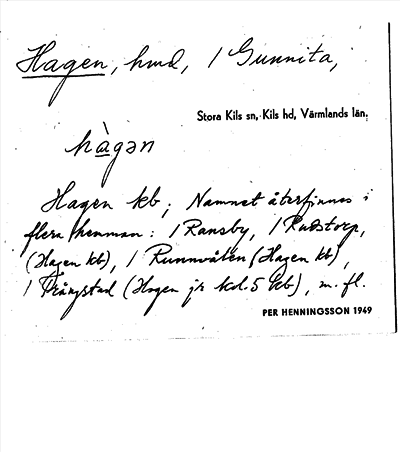 Hagen, hmd, / Gunnita,
Stora Kils sn, Kils hd, Värmlands län.
hàgən
Hagen kb; Namnet återfinnes i
flera hemman: / Ransby, / Rudstorp,
(Hagen kb), / Runnvålen (Hagen kb),
/ (Hagen jr kd. 5 kb), m. fl.
PER HENNINGSSON 1949